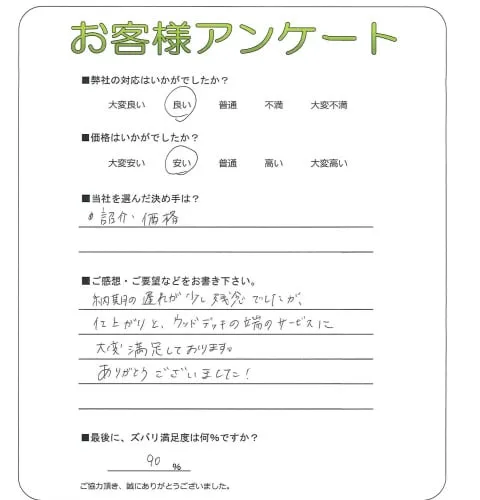 お客様アンケート
■弊社の対応はいかがでしたか？
大変良い 良い 普通 不満 大変不満
■価格はいかがでしたか？
大変安い 安い 普通 高い 大変高い
■当社を選んだ決め手は？
紹介・価格
■ご感想・ご要望などをお書き下さい。
納期の遅れが少し残念でしたが、
仕上がりと、ウッドデッキの端のサービスに
大変満足しております。
ありがとうございました！
■最後に、ズバリ満足度は何%ですか？
90 %
ご協力頂き、誠にありがとうございました。